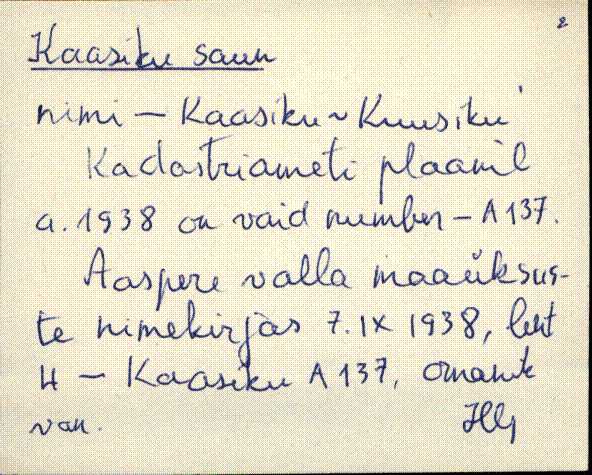 2
Kaasiku saun
nimi – Kaasiku ~ Kuusiku
Kadastriameti plaanil
a. 1938 on vaid number – A 137.
Aaspere valla maaüksus-
te nimekirjas 7. IX 1938, leht
4 – Kaasiku A 137, omanik